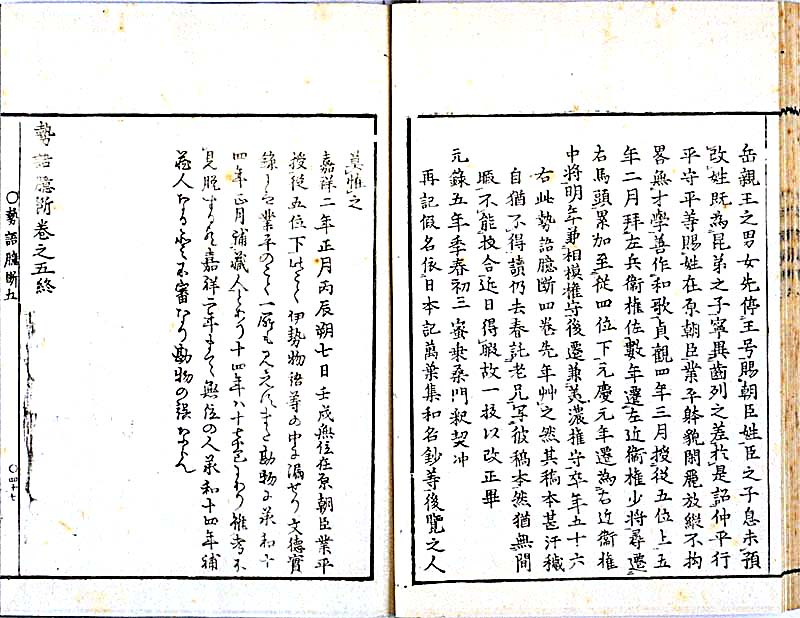 岳親王之男女先停王号賜朝臣姓臣之子息未預
改姓既為昆弟之子寧異歯列之差於是詔仲平行
平守平等賜姓在原朝臣業平躰貌閑麗放縦不拘
畧無才學善作和歌貞觀四年三月授從五位上五
年二月拜左兵衛權佐數年遷左近衛權少将尋遷
右馬頭累加至從四位下元慶元年遷為右近衛權
中将明年兼相模権守後遷兼美濃権守卒年五十六
右此勢語臆断四巻先年艸之然其稿本甚汗穢
自猶不得讀仍去春託老兄写彼稿本然猶無間
暇不能挍合近日得暇故一挍以改正畢
元錄五年季春初三 蜜乗桑門釈契冲
再記假名依日本記萬葉集和名鈔等後覧之人
莫恠之
嘉祥二年正月丙辰朔七日壬戌無位在原朝臣業平
授從五位下此とく伊勢物語等の中に漏せり文德實
錄には業平のとく一所も見えす又勘物に承和十
四年正月補藏人とあり十四年八十本にあり推考ふ
見脱すらん嘉祥二年まて無位の人承和十四年補
蔵人なる事不審なり勘物の誤ならん
勢語臆断巻之五終
〇勢語臆断五
〇四十七